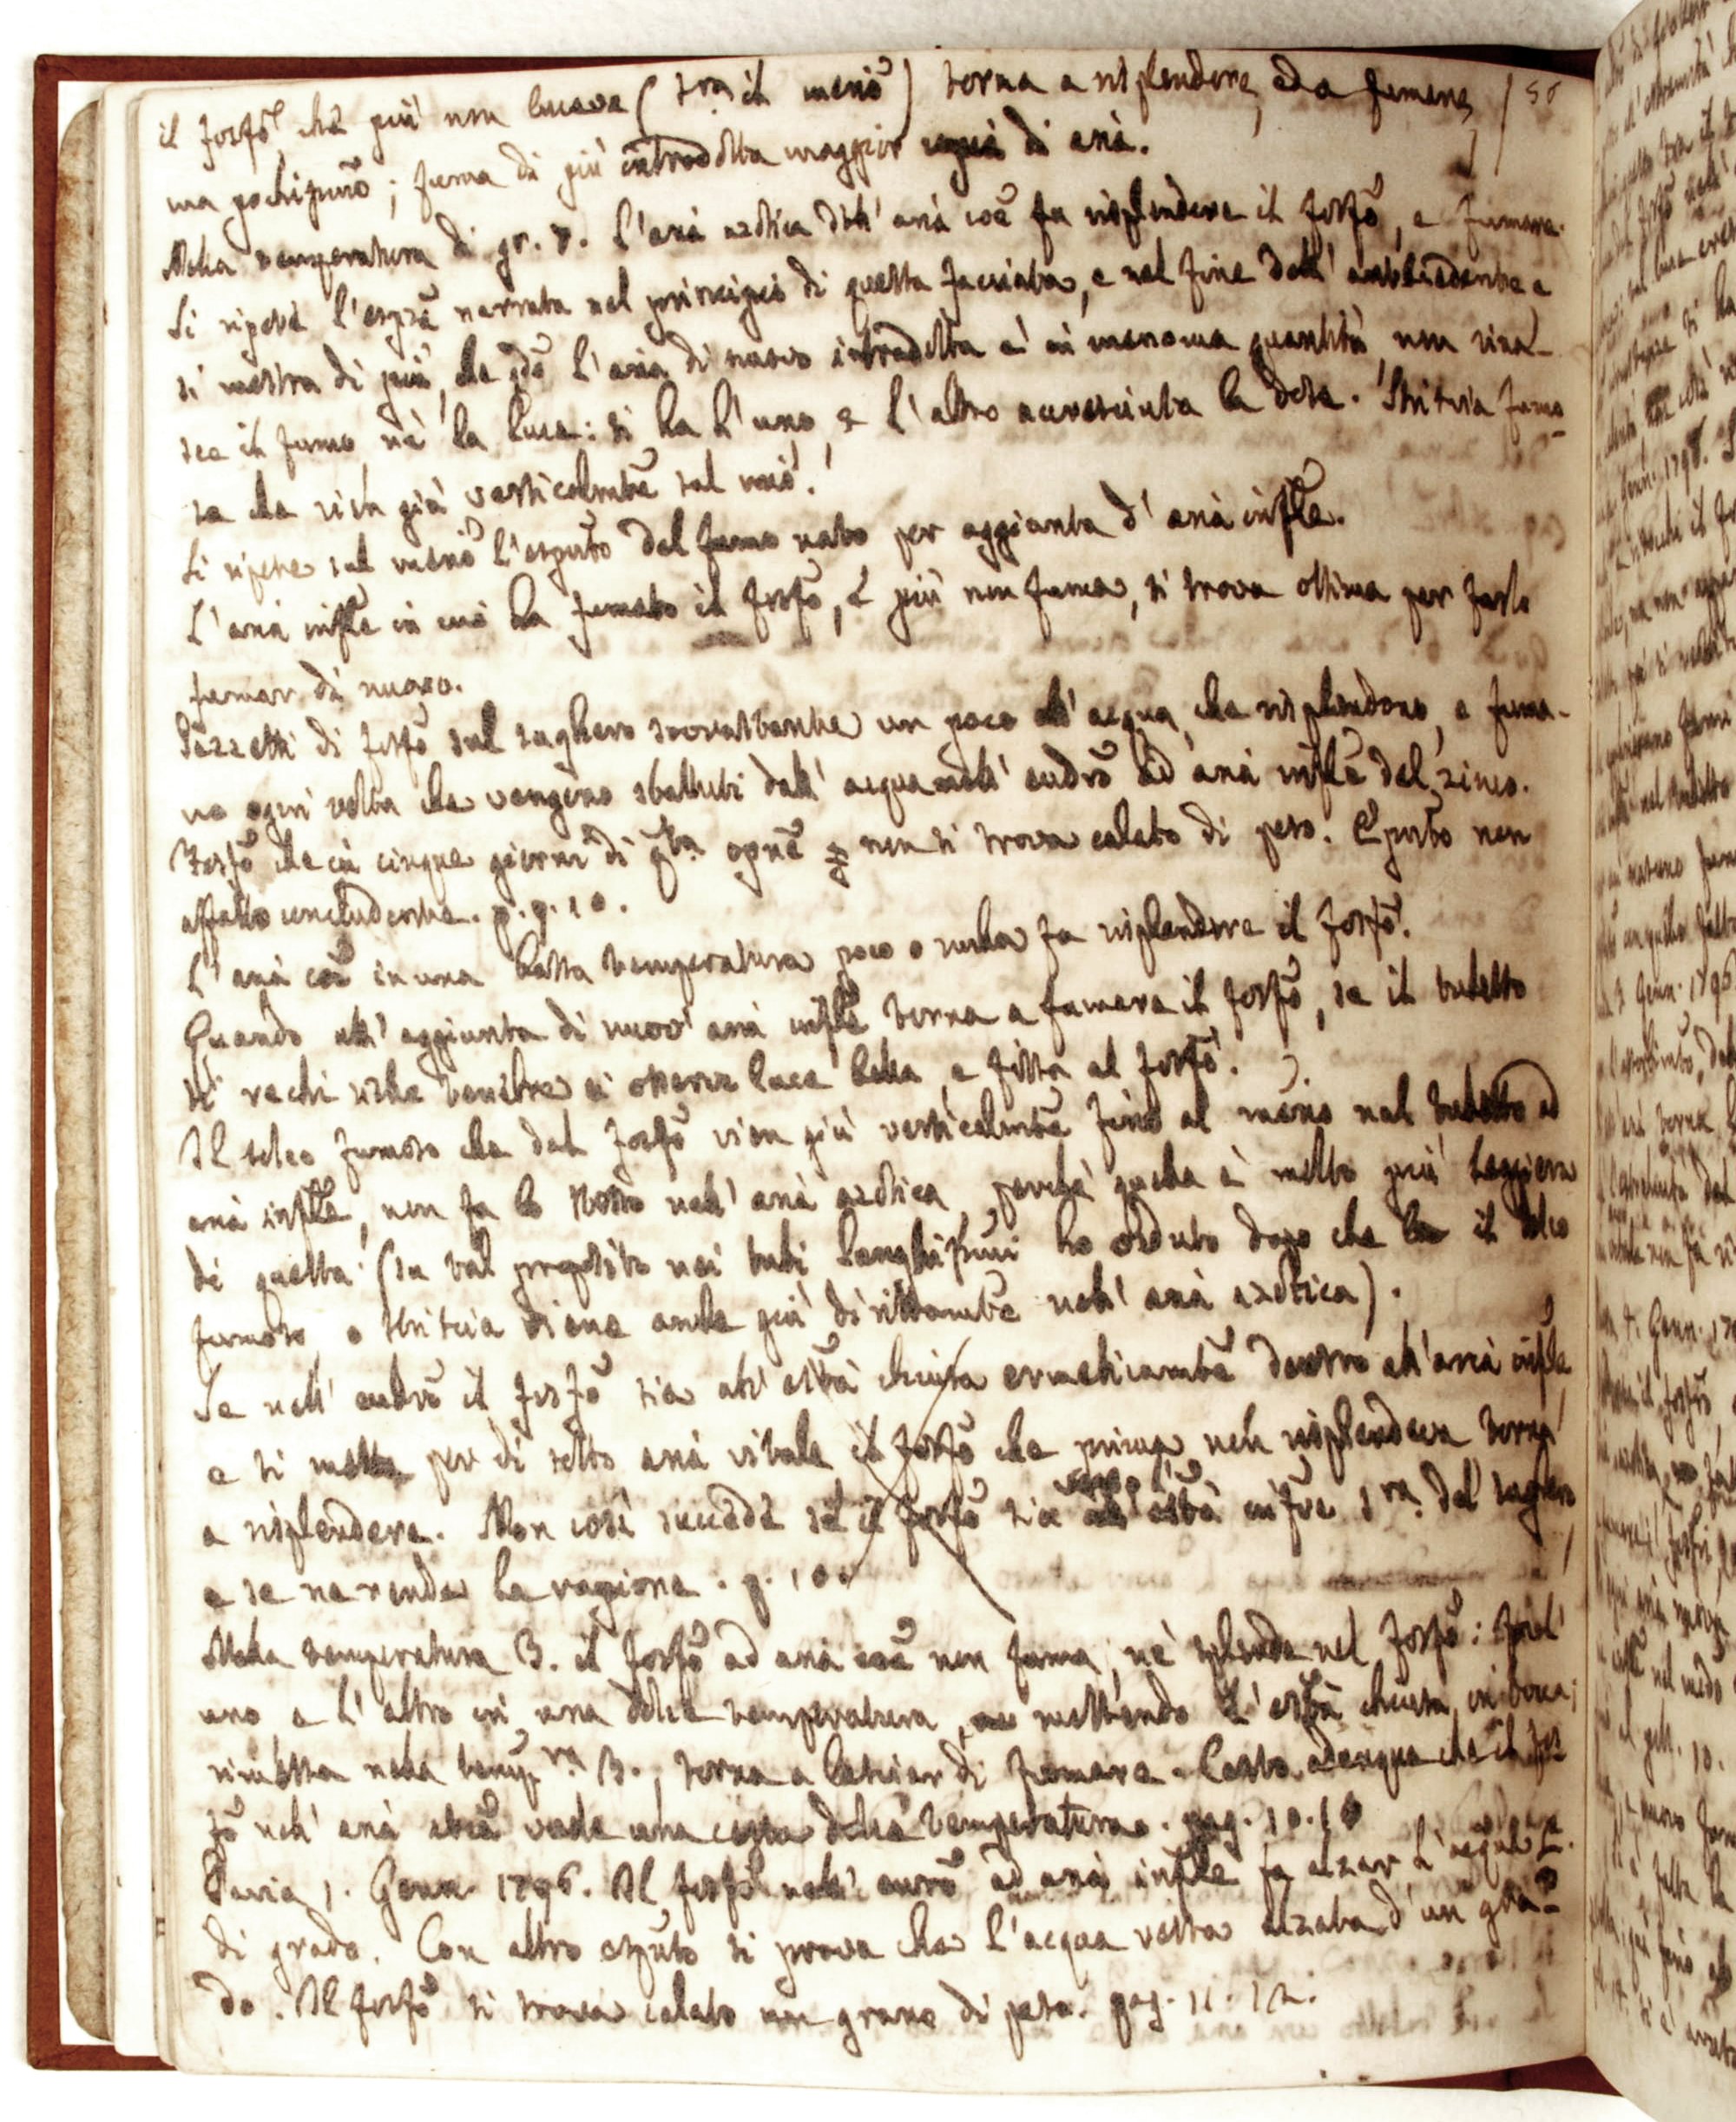 il fosfō, che più non luceva (sop.ª il meriō) torna a risplendere, ed a fumare,
ma pochissimō; fuma di più introdotta maggior copia di aria.
Nella temperatura di gr. 7. l'aria azotica dell' aria coē fa risplendere il fosfō, e fumare.
Si ripete l'espzā narrata nel principio di questa facciata, e nel fine dell' antecedente e
si mostra di più, che se l'aria di nuovo introdotta è in menoma quantità, non rina-
sce il fumo nè la luce: si ha l'uno, e l'altro accresciuta la dose. Striscia fumo-
sa che vien giù verticalmtē sul meriō.
Si ripete sul meriō l'esputo del fumo nato per aggiunta d'aria inflē.
L'aria inflē in cui ha fumato il fosfō, e più non fuma, si trova ottima per farlo
fumar di nuovo.
Pezzetti di fosfō sul sughero sovrastante un poco all' acqua, che risplendono, e fuma-
no ogni volta che vengono sbattuti dall' acqua nell' eudrō ad aria inflē del zinco.
Fosfō che in cinque giorni di qta opnē non si trova calato di peso. Esputo non
affatto concludente. p. 9. 10.
L'aria coē in una bassa temperatura poco o nulla fa risplendere il fosfō.
Quando all' aggiunta di nuov' aria inflē torna a fumare il fosfō, se il tubetto
si rechi nelle tenebre si osserva luce bella, e fissa al fosfō.
Il solco fumoso che dal fosfō vien giù verticalmtē fino al meriō nel tubetto ad
aria inflē, non fa lo stesso nell' aria azotica, perchè quella è molto più leggiera
di questa (In tal proposito nei tubi lunghissimi ho veduto dopo che il solco
fumoso, o striscia viene anche giù dirittamtē nell' aria azotica).
Se nell' eudrō il fosfō sia all' esttà chiusa ermeticamtē dentro all' aria inflē,
e si metta per di sotto aria vitale il fosfō che prima non risplendeva torna
a risplendere. Non così succede se il fosfō sia verso l' esttà infre s.ra del sughero
e se ne rende la ragione. p. 10.
Nella temperatura 3. il fosfō ad aria coē non fuma, nè splende nel fosfō: fa l'
uno e l'altro in una dolce temperatura, mettendo l'està chiusa in bocca;
rimessa nella tempra 3., torna a lasciar di fumare. Certo adunque che il fos
fō nell' aria atcā vuole una certa dolce temperatura. pag. 10. 11
Pavia 1. Genn. 1796. Il fosfō nell' eurō ad aria inflē fa alzar l'acqua
di grado. Con altro esputo si prova che l'acqua resta alzata d'un gra-
do. Il fosfō si trova calato un grano di peso. pag. 11. 12.